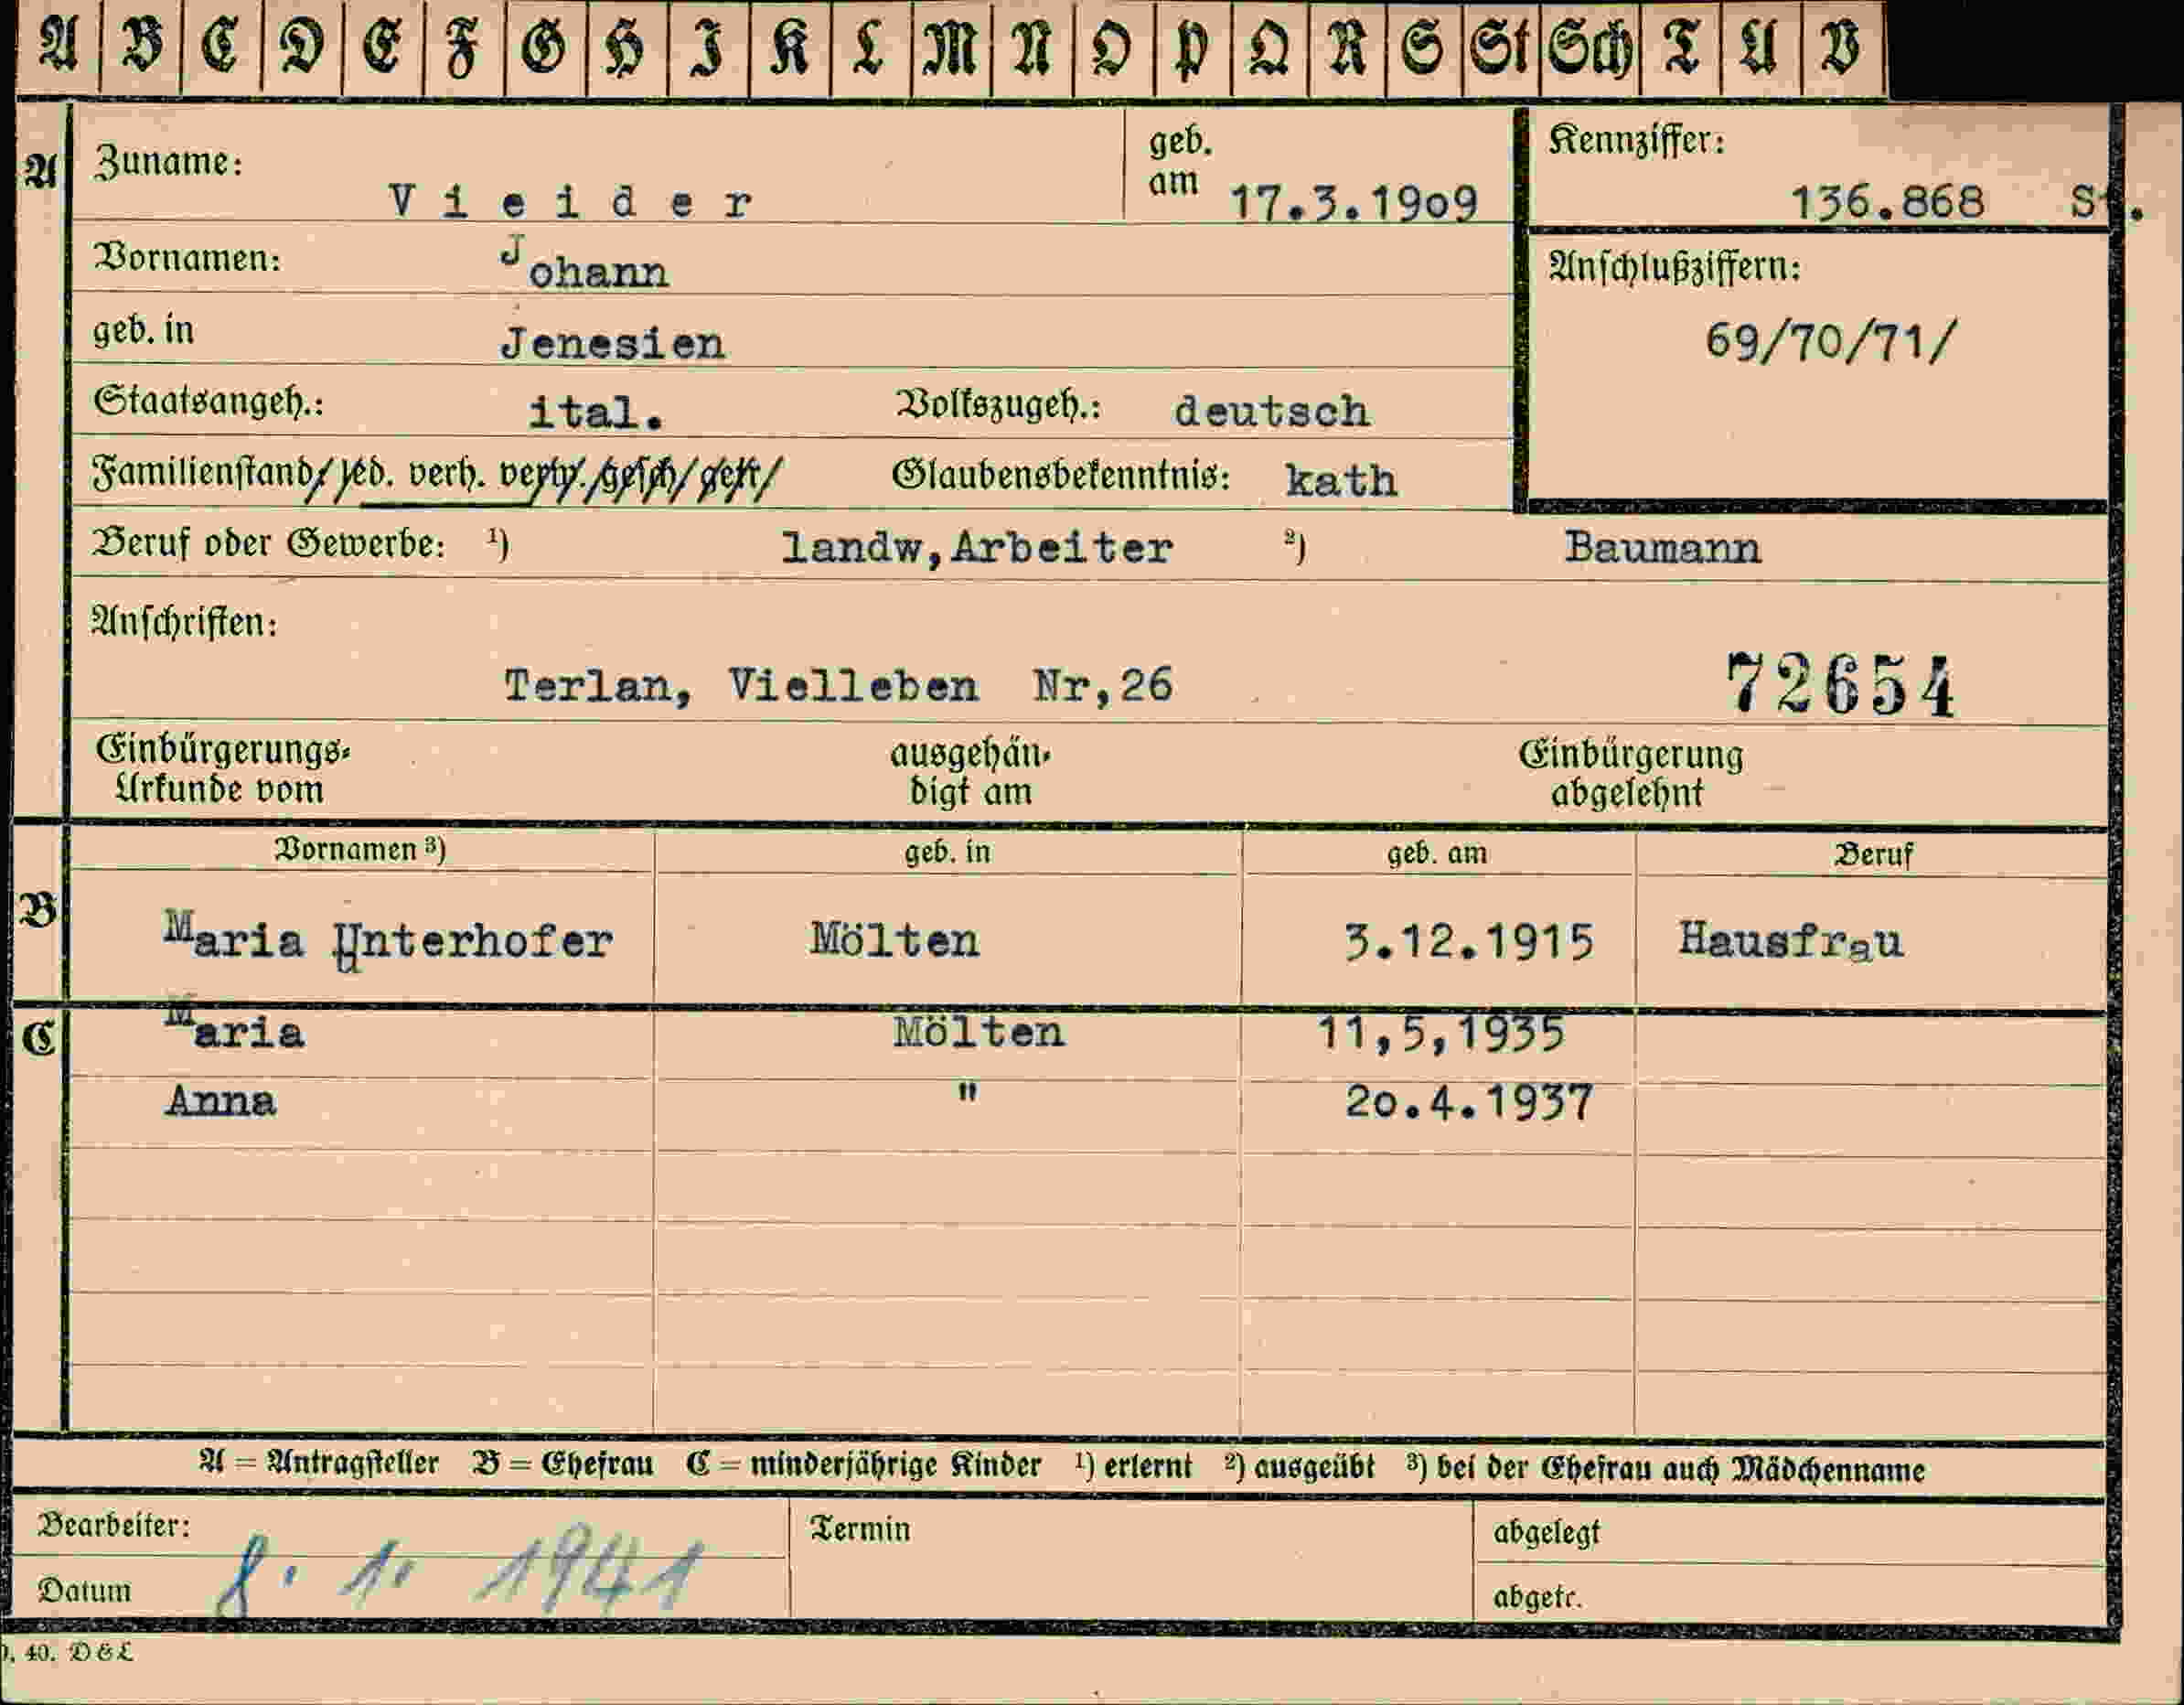 A B C D E F G H I K L M N O P Q R S St Sch T U V
A Zuname: V i e i d e r geb. am 17.3.1909 Kennziffer: 136.868 St.
Vornamen: Johann Anschlußziffern:
geb. in Jenesien 69/70/71/
Staatsangeh.: ital. Volkszugeh.: deutsch
Familienstand/ led. verh. verw. /gesch/ getr/ Glaubensbekenntnis: kath
Beruf oder Gewerbe: ¹) landw,Arbeiter ²) Baumann
Anschriften:
Terlan, Vielleben Nr,26 72654
Einbürgerungs-Urkunde vom ausgehän-digt am Einbürgerung abgelehnt
Vornamen ³) geb. in geb. am Beruf
B Maria Unterhofer Mölten 3.12.1915 Hausfrau
C Maria Mölten 11,5,1935
Anna " 2o.4.1937
A = Antragsteller B = Ehefrau C = minderjährige Kinder ¹) erlernt ²) ausgeübt ³) bei der Ehefrau auch Mädchenname
Bearbeiter: Termin abgelegt
Datum 8. 1. 1941 abgetr.
40. D & L